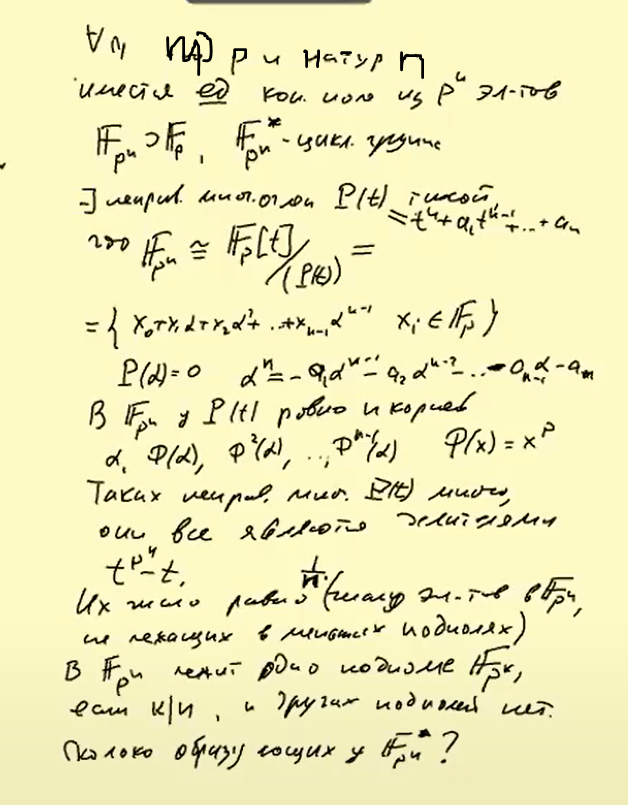 ∀ n, пр p и натур n
имеется ед кон. поле из pⁿ эл-тов
𝔽_{pⁿ} ⊃ 𝔽_p, 𝔽_{pⁿ}^* - цикл. группа
∃ неприв. многочлен P(t) такой,
= tⁿ + a₁tⁿ⁻¹ + ... + aₙ
что 𝔽_{pⁿ} ≅ 𝔽_p[t]/(P(t)) =
= { x₀ + x₁α + x₂α² + ... + xₙ₋₁αⁿ⁻¹ xᵢ ∈ 𝔽_p }
P(α) = 0 αⁿ = -a₁αⁿ⁻¹ - a₂αⁿ⁻² - ... - aₙ₋₁α - aₙ
В 𝔽_{pⁿ} у P(t) ровно n корней
α, Φ(α), Φ²(α), ..., Φⁿ⁻¹(α) Φ(x) = x^p
Таких неприв. мн. P(t) много,
они все являются делителями
t^{pⁿ} - t.
Их число равно 1/n (числу эл-тов в 𝔽_{pⁿ},
не лежащих в меньших подполях)
В 𝔽_{pⁿ} лежит одно подполе 𝔽_{p^k},
если k|n, и других подполей нет.
Сколько образующих у 𝔽_{pⁿ}^*?